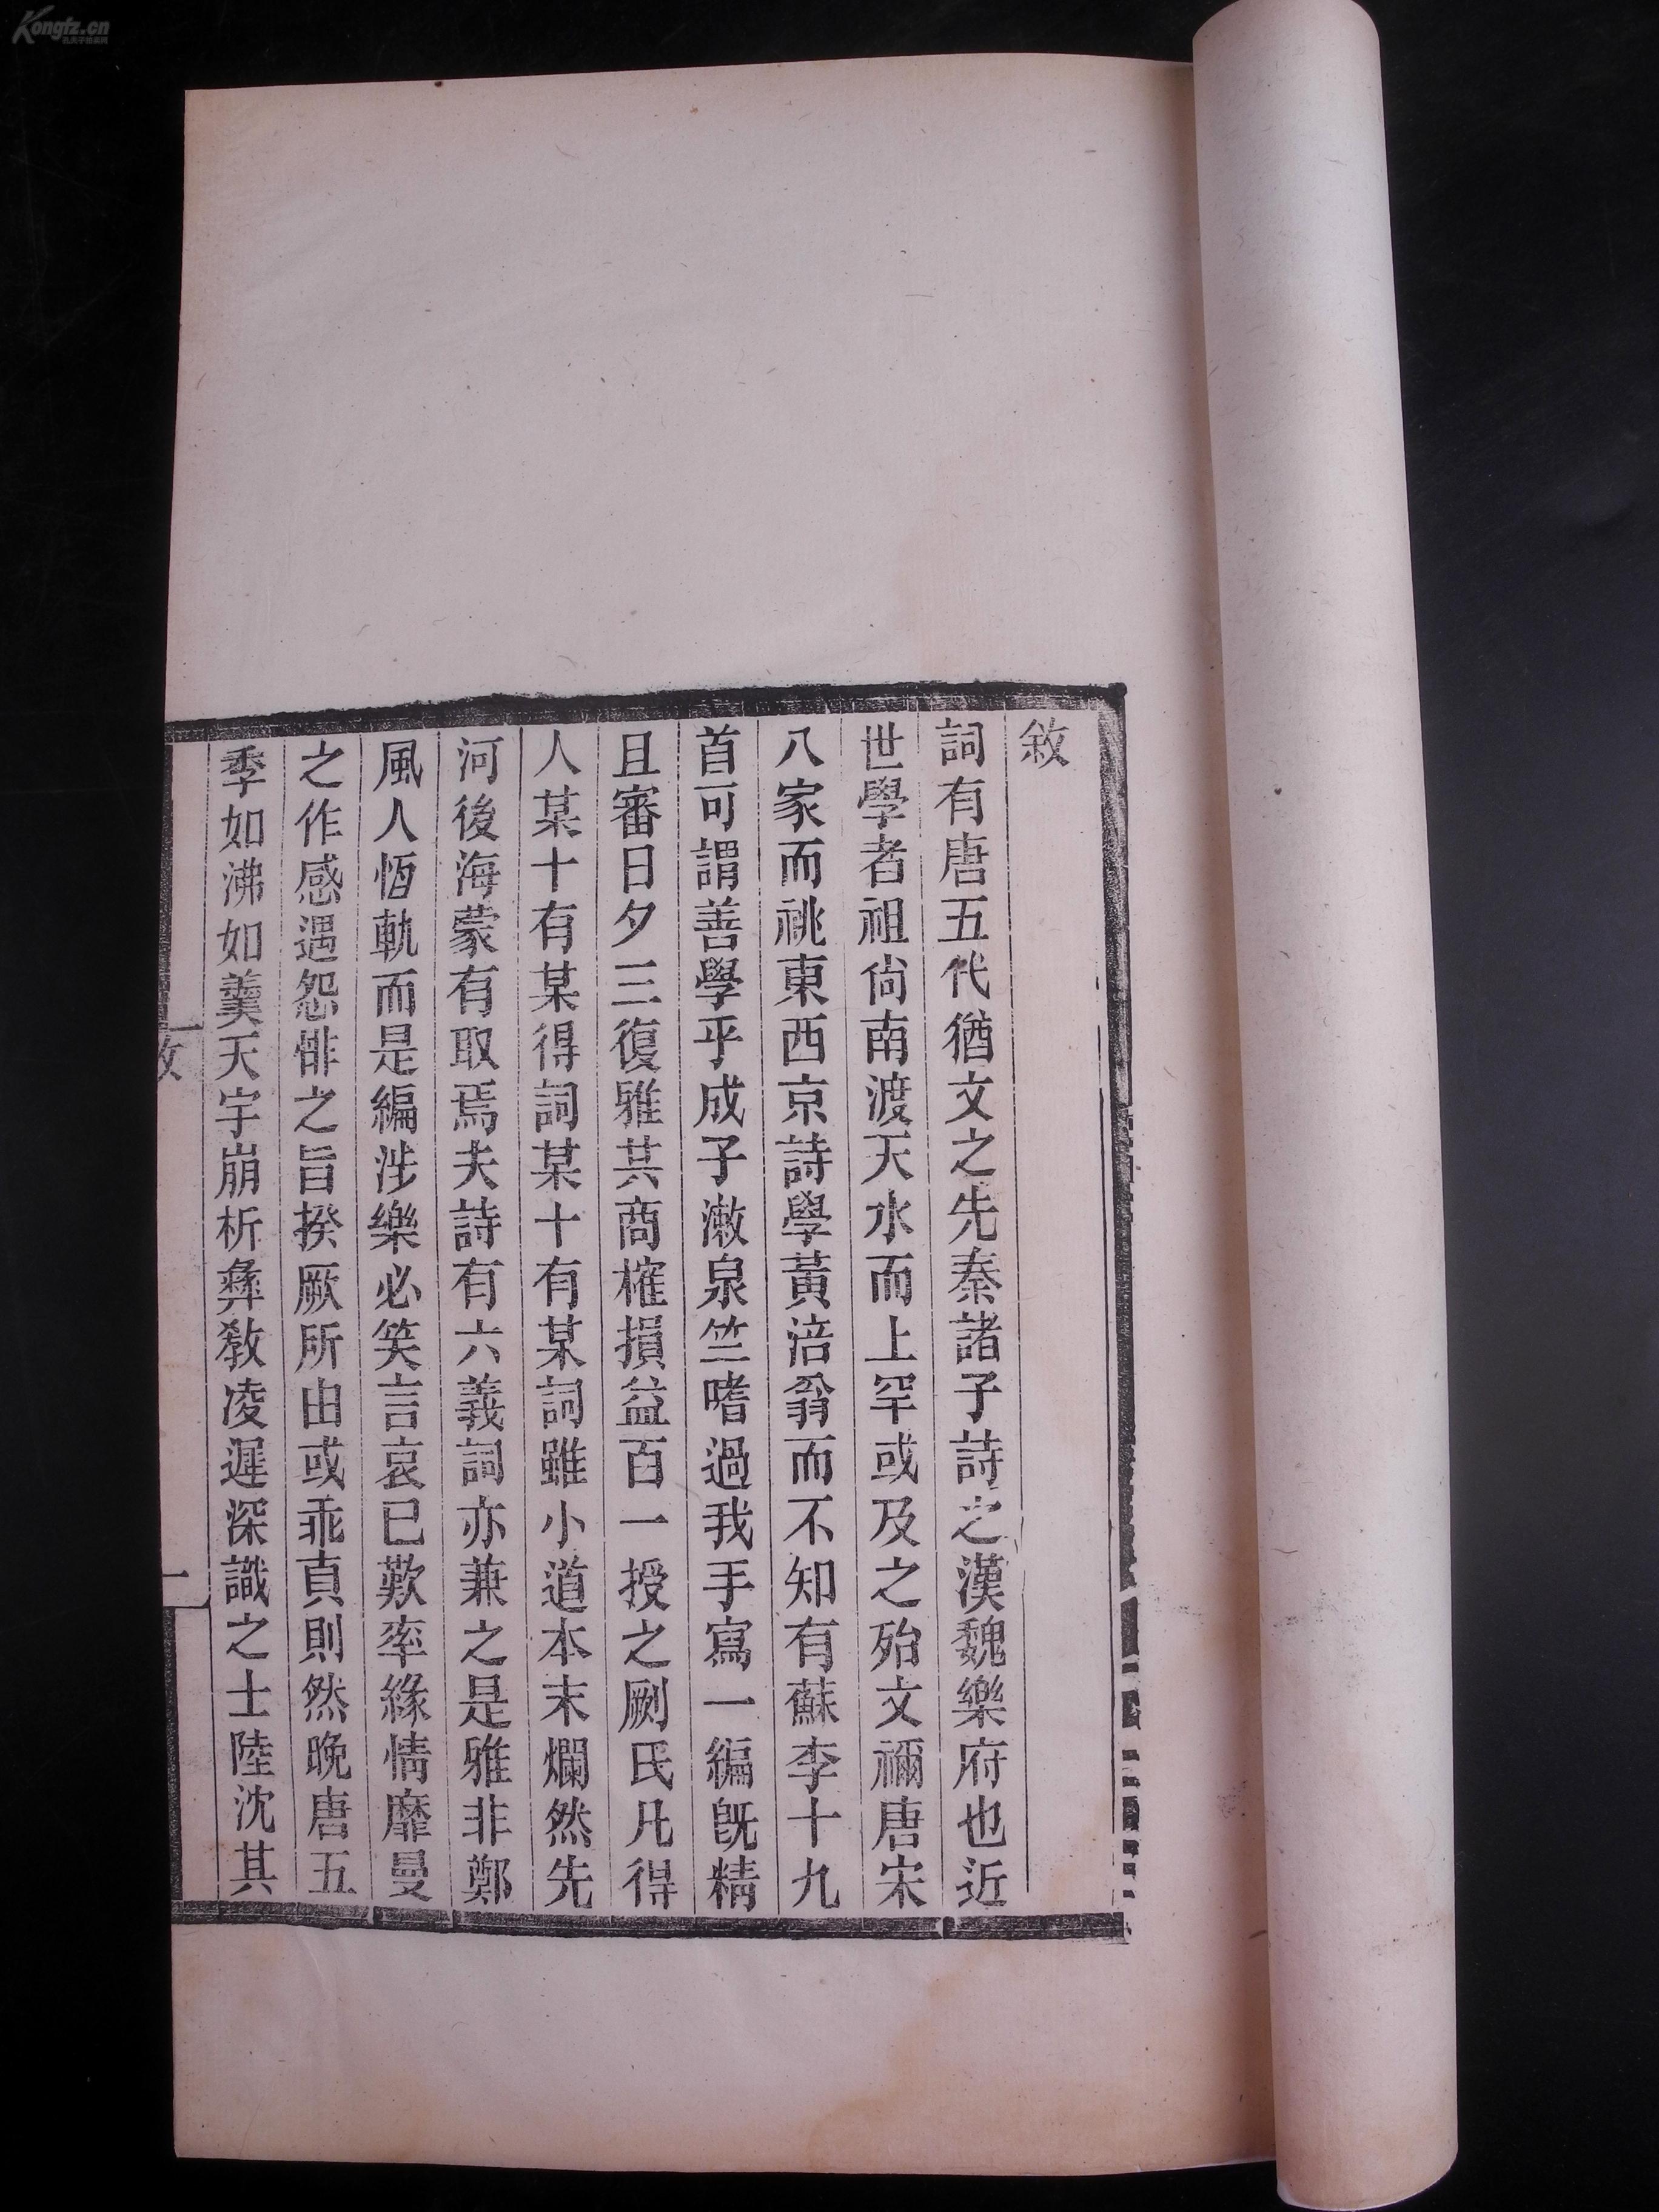 敘
詞有唐五代猶文之先秦諸子詩之漢魏樂府也近
世學者祖尙南渡天水而上罕或及之殆文禰唐宋
八家而祧東西京詩學黃涪翁而不知有蘇李十九
首可謂善學乎成子漱泉竺嗜過我手寫一編旣精
且審日夕三復雅共商榷損益百一授之劂氏凡得
人某十有某得詞某十有某詞雖小道本末爛然先
河後海蒙有取焉夫詩有六義詞亦兼之是雅非鄭
風人恆軌而是編涉樂必笑言哀已歎率緣情靡曼
之作感遇怨悱之旨揆厥所由或乖眞則然晚唐五
季如沸如羹天宇崩析彝敎凌遲深識之士陸沈其
敘
一
Kongfz.cn